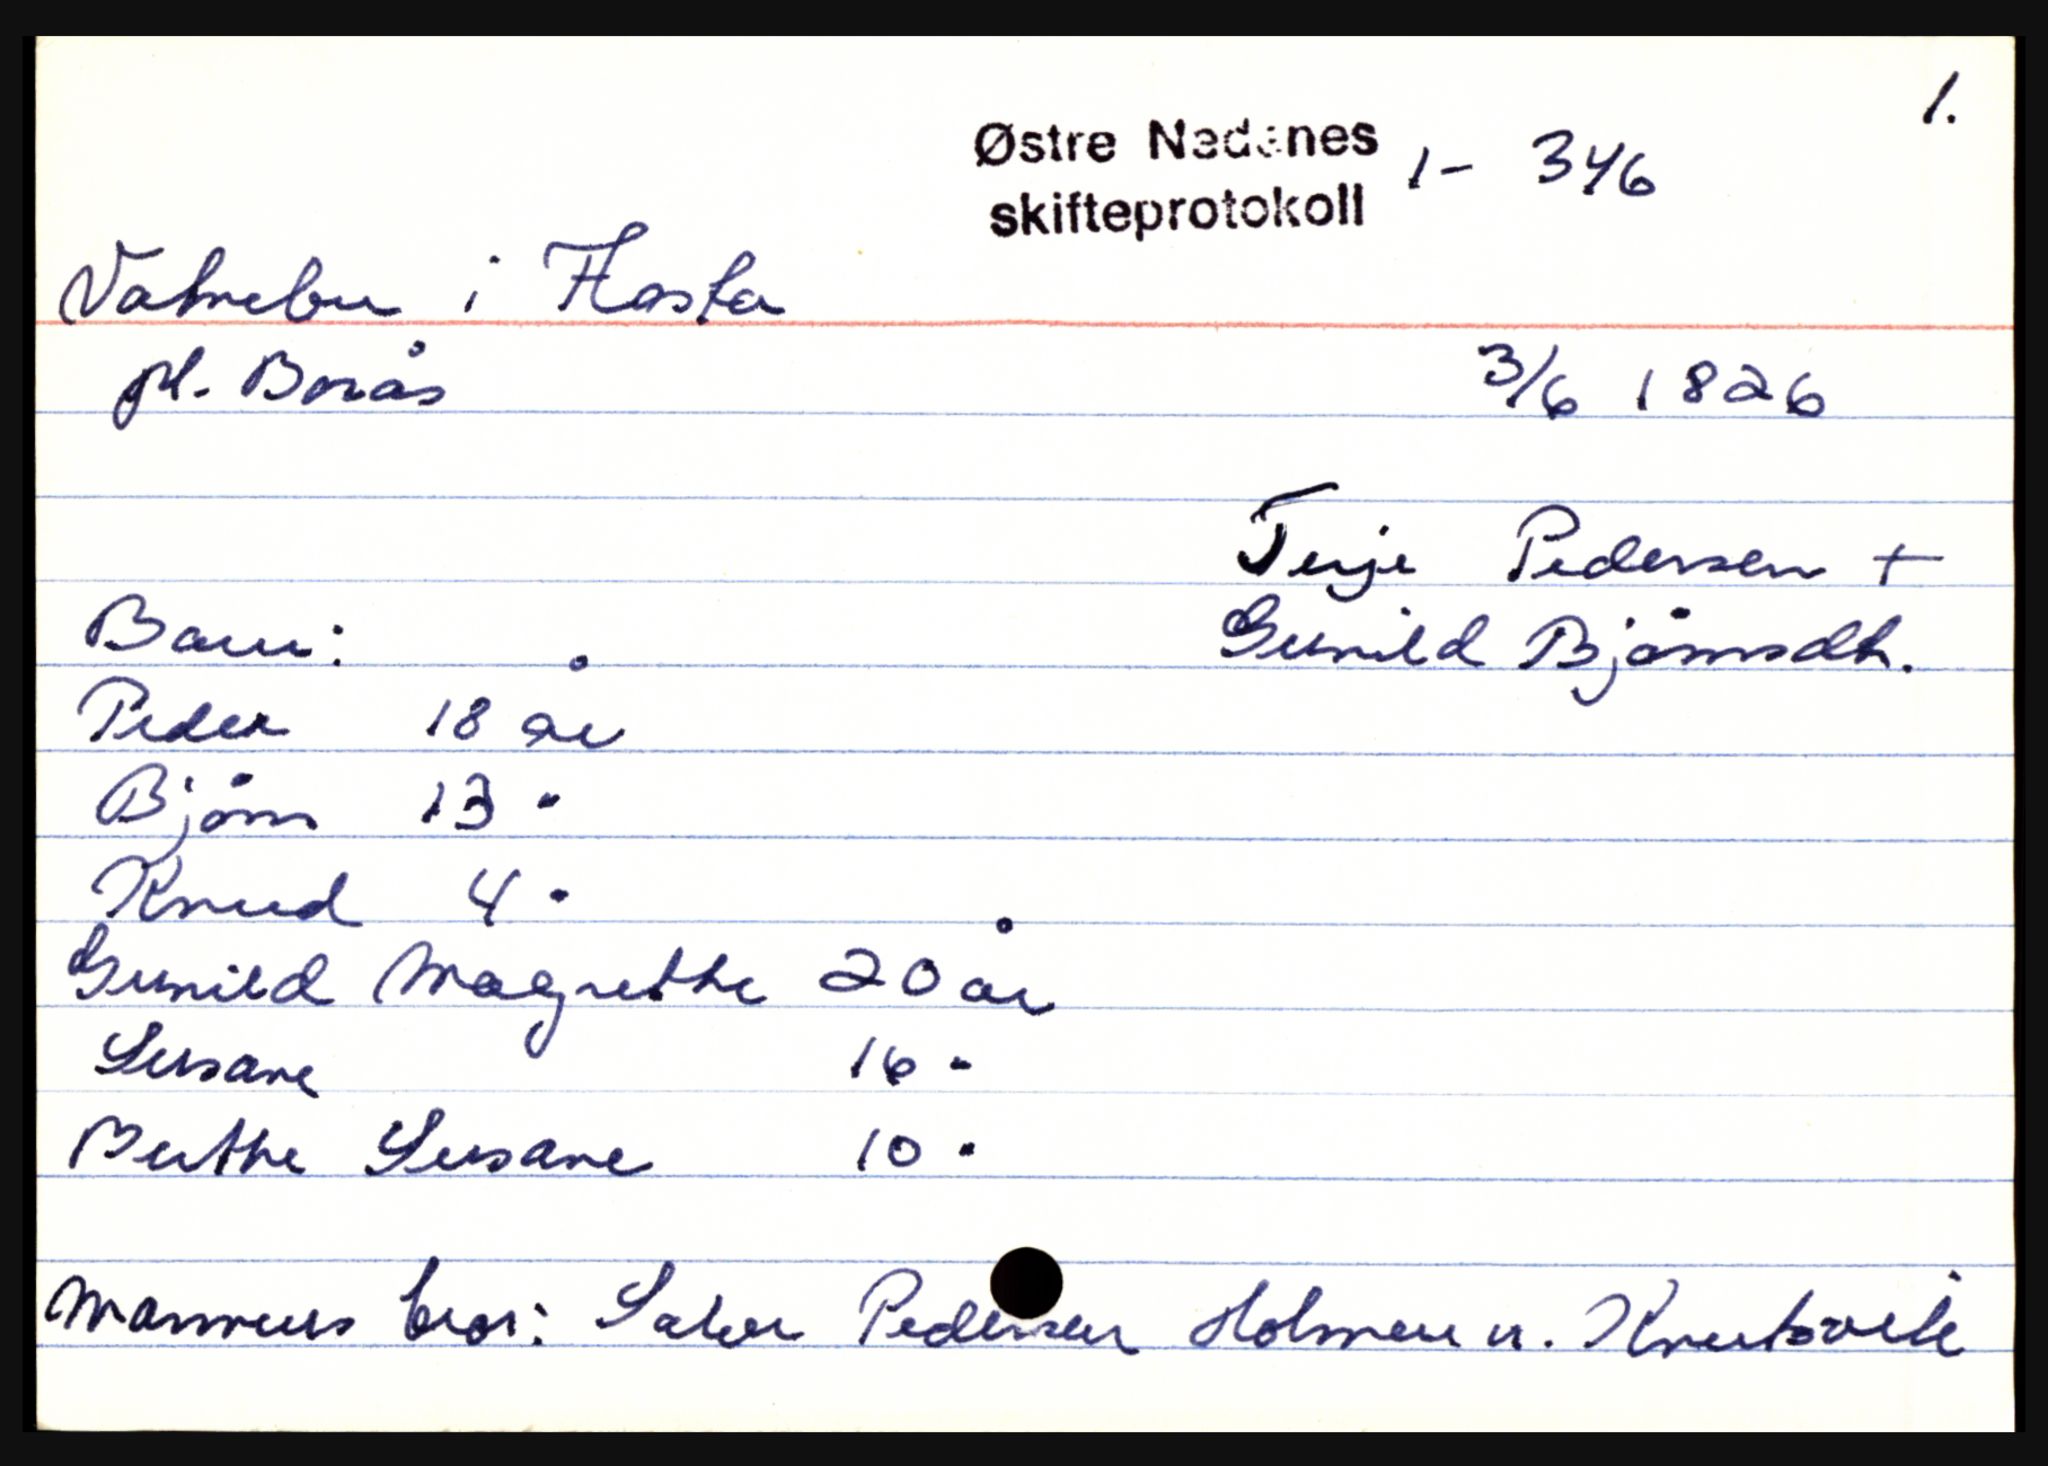 1.
Østre Nedenes
skifteprotokoll 1- 346
Vatnebu i Flosta
pl. Borås
3/6 1826
Terje Pedersen +
Gunild Bjørnsdtr.
Barn:
Peder 18 år
Bjørn 13 "
Knud 4 "
Gunild Magrethe 20 år
Susane 16 "
Berthe Susane 10 "
Mannens bror: Pedersen Holmen u. Knutsvik